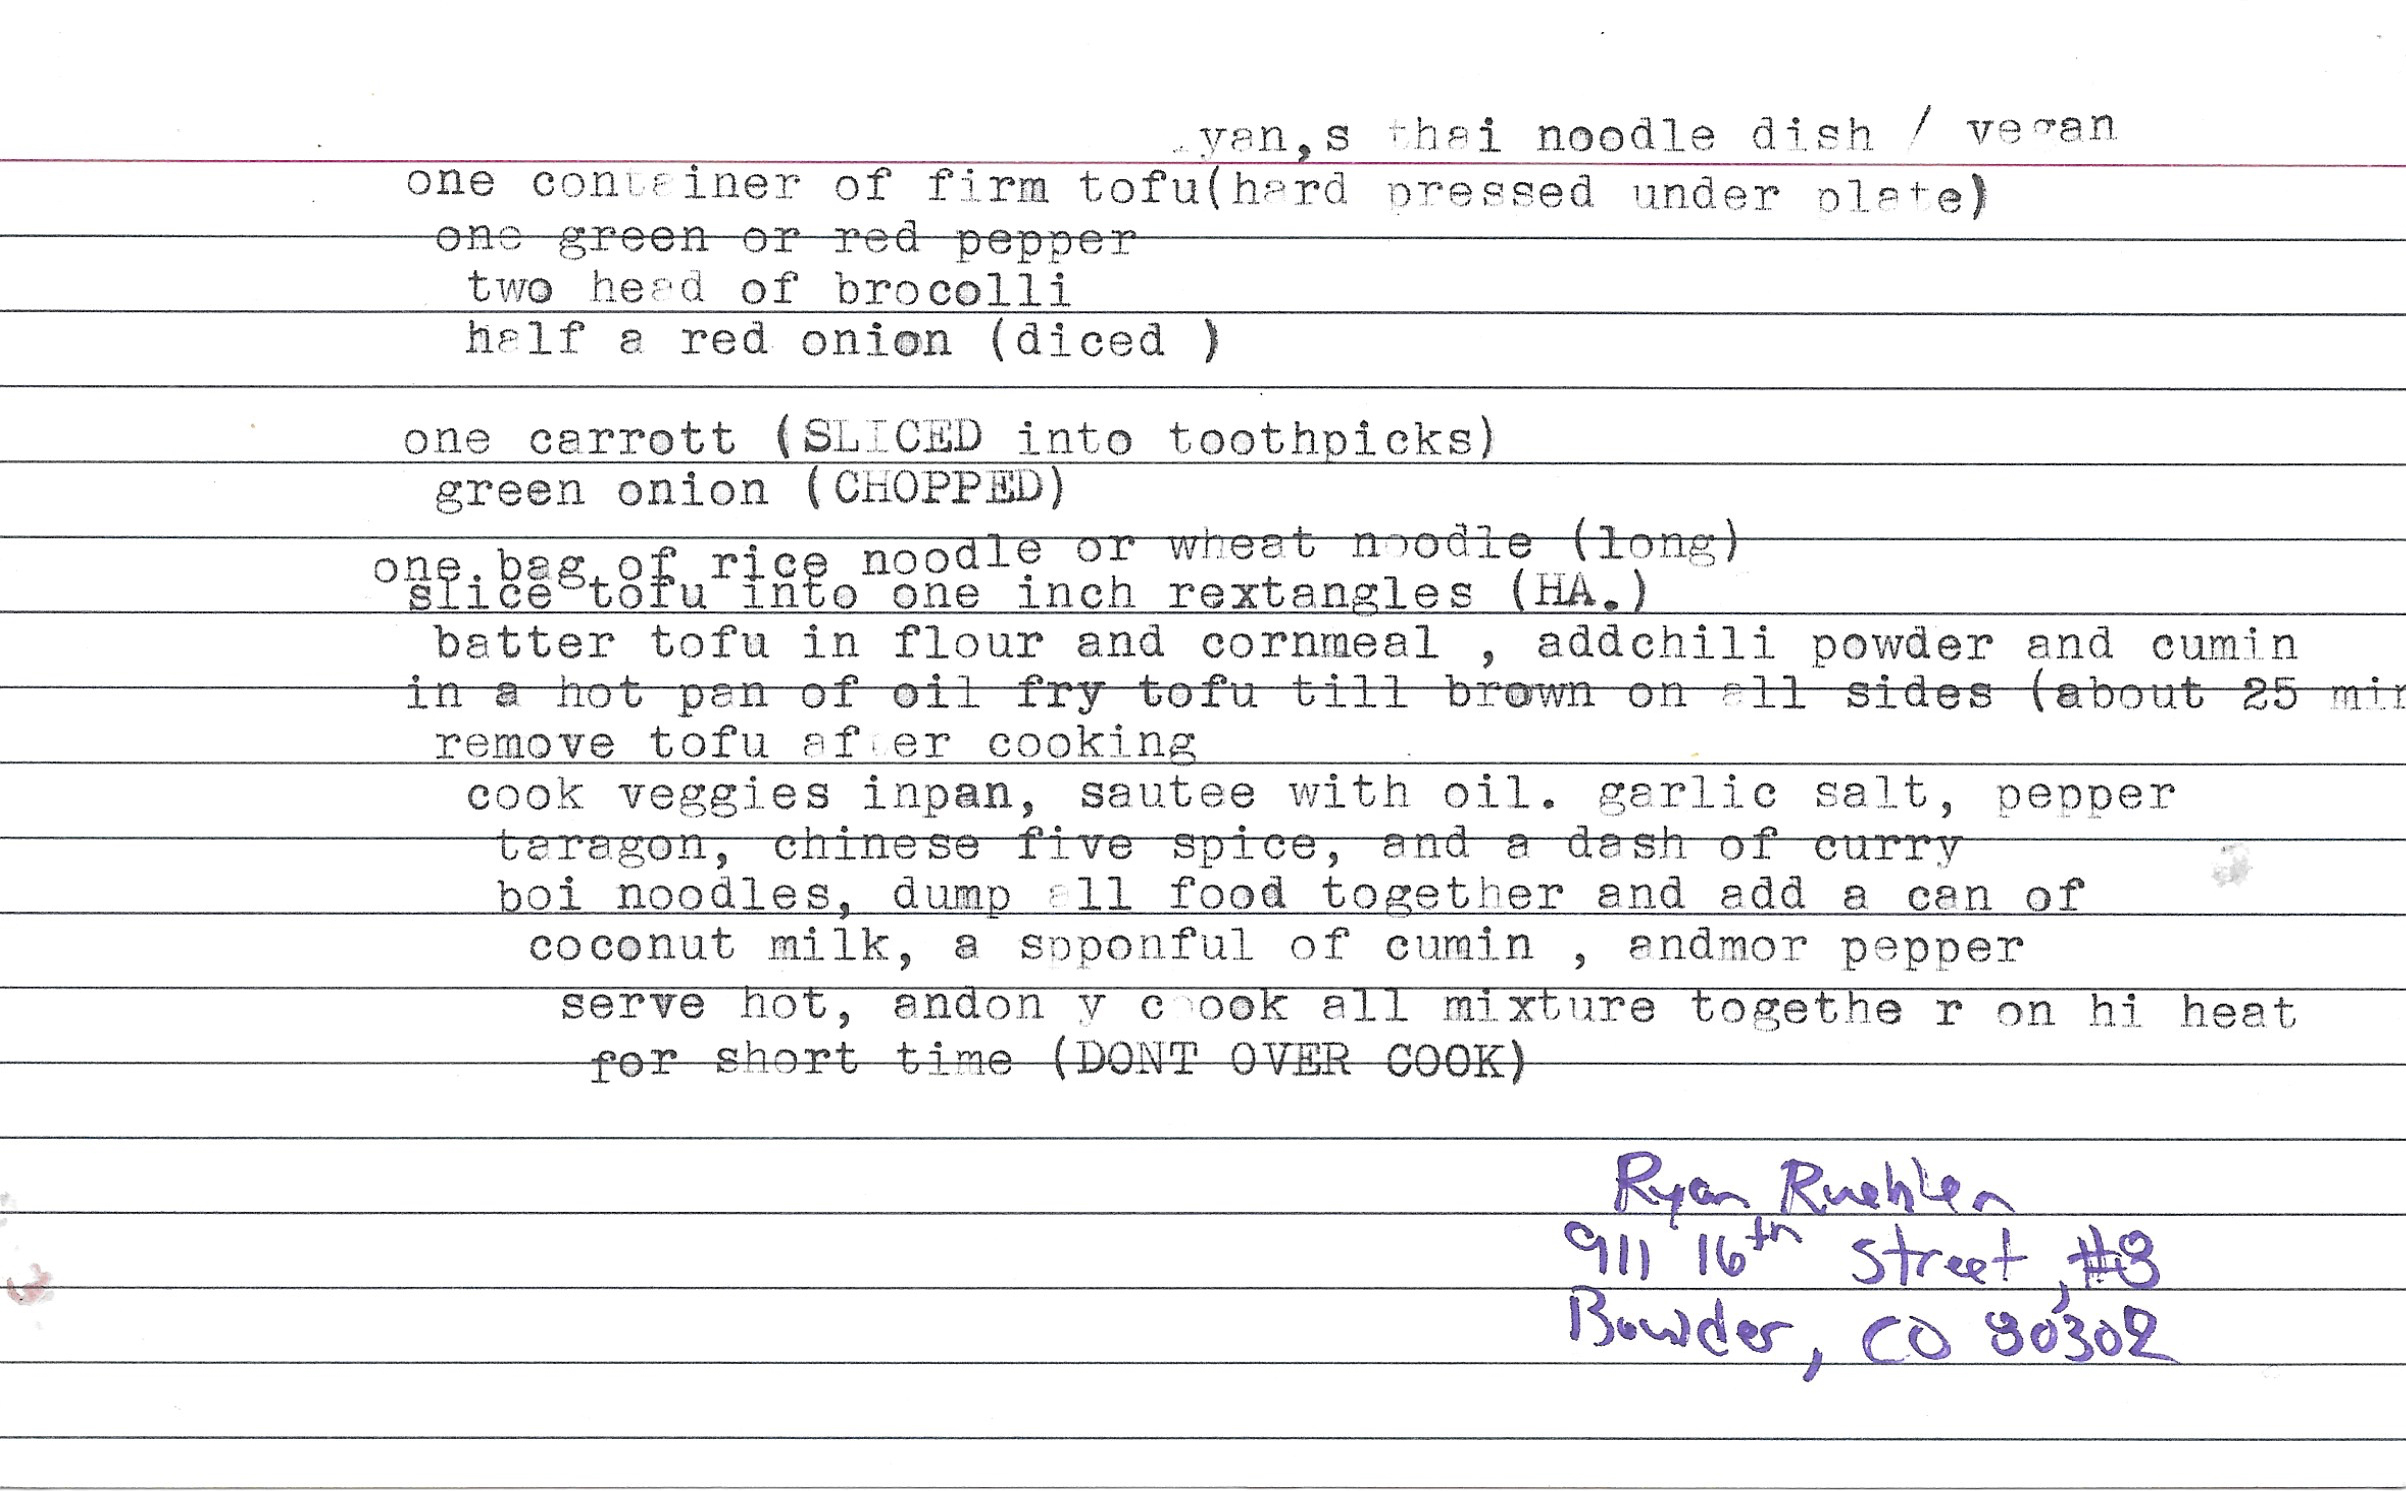 yan,s thai noodle dish / vegan
one container of firm tofu(hard pressed under plate)
one green or red pepper
two head of brocolli
half a red onion (diced )
one carrott (SLICED into toothpicks)
green onion (CHOPPED)
one bag of rice noodle or wheat noodle (long)
slice tofu into one inch rextangles (HA.)
batter tofu in flour and cornmeal , addchili powder and cumin
in a hot pan of oil fry tofu till brown on all sides (about 25 min
remove tofu after cooking
cook veggies inpan, sautee with oil. garlic salt, pepper
taragon, chinese five spice, and a dash of curry
boi noodles, dump all food together and add a can of
coconut milk, a spponful of cumin , andmor pepper
serve hot, andon y c ook all mixture togethe r on hi heat
for short time (DONT OVER COOK)
Ryan Ruehlen
911 16th Street, #3
Boulder, CO 80302